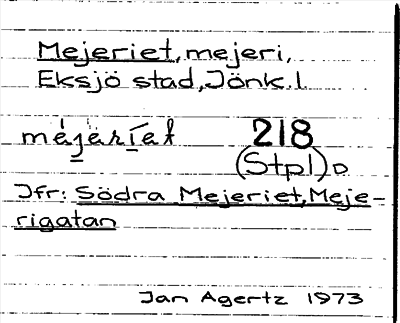 Mejeriet, mejeri,
Eksjö stad, Jönk. l.
218
(Stpl) D
Jfr: Södra Mejeriet, Meje-
rigatan
Jan Agertz 1973